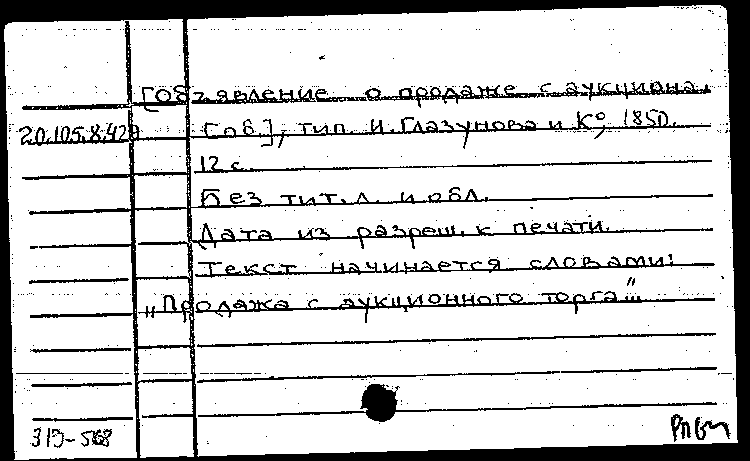 [Объявление о продаже с аукциона.
20.105.8.429 Спб.], тип. И. Глазунова и К°, 1850.
12 с.
Без тит. л. и обл.
Дата из разреш. к печати.
Текст начинается словами:
„Продажа с аукционного торга..."